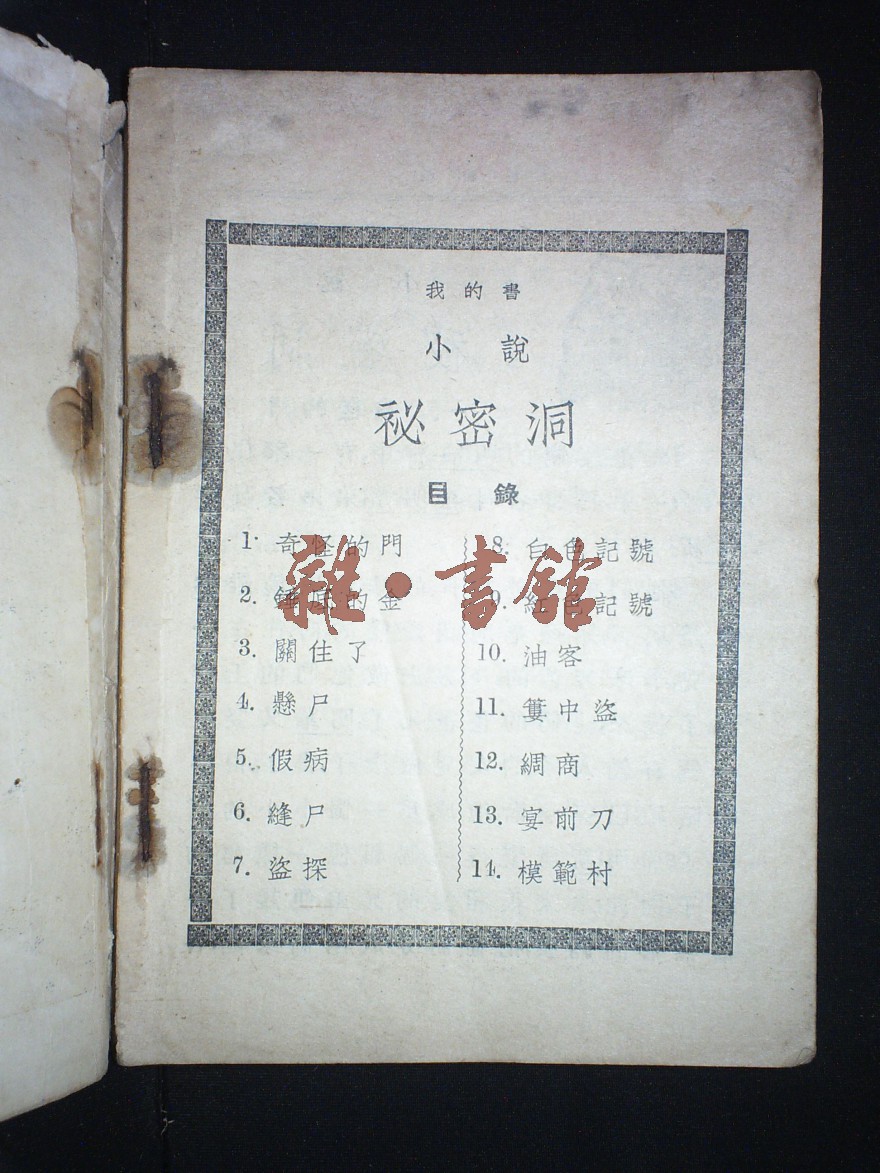 我的書
小說
祕密洞
目錄
1. 奇怪的門
2. 錘底的金
3. 關住了
4. 懸尸
5. 假病
6. 縫尸
7. 盜探
8. 白色記號
9. 紅色記號
10. 油客
11. 簍中盜
12. 綢商
13. 宴前刀
14. 模範村
雜·書舘